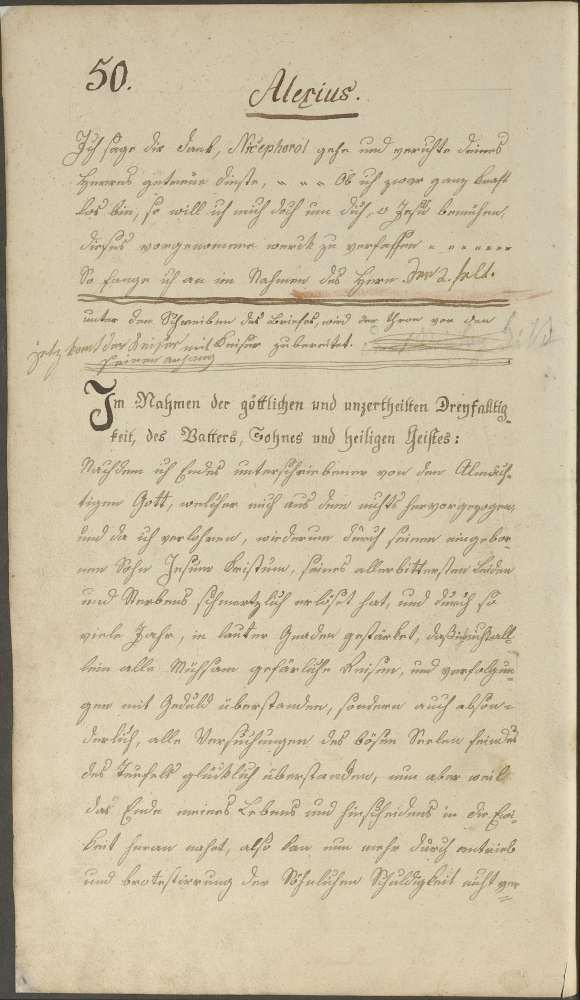 50.
Alexius.
Ich sage dir Dank, Nicephoro! gehe und verrichte deines
Herrens getreüe dinste, " " " Ob ich zwar ganz kraft
los bin, so will ich mich doch um dich, o Jesu bemühen,
dieses vorgenommene werck zu verfassen " " " " " "
So fange ich an im Nahmen des Herrn.
unter dem Schreiben des briefes, wird der thron vor den
Keiser zubereitet.
jetz komt der Keiser mit
seinen anhang
Im Nahmen der göttlichen und unzertheilten Dreyfalltig-
keit, des Vatters, Sohnes und heiligen Geistes:
Nachdem ich Endes unterschriebener von dem Allmäch-
tigen Gott, welcher mich aus dem nichts hervorgezogen,
und da ich verlohren, wiederum durch seinen eingebor-
nen Sohn Jesum Kristum, seines allerbittersten Leiden
und Sterbens schmertzlich erlöset hat, und durch so
viele Jahr, in lauter Gnaden gestärket, daß ich nicht all-
lein alle Mühsam gefärliche Reisen, und verfolgun-
gen mit Geduld überstanden, sondern auch abson-
derlich, alle Versuchungen des bösen Seelen feindes
des Teufels glücklich überstanden, nun aber weil
das Ende meines Lebens und hinscheidens in die Ewi-
keit heran nahet, also kan nun mehr durch antrieb
und brotestirrung der Söhnlichen Schuldigkeit nicht ver-